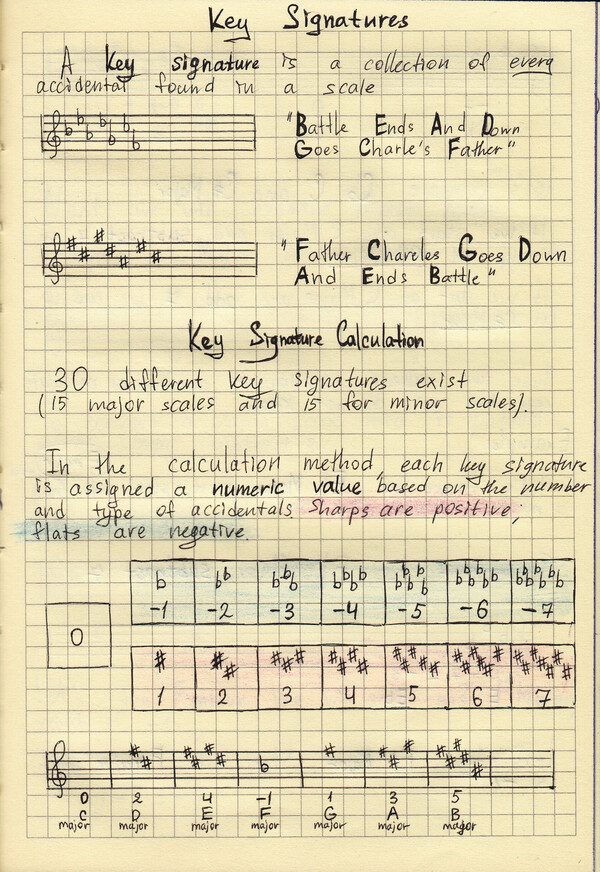 Key Signatures
A Key signature is a collection of every
accidental found in a scale
"Battle Ends And Down
Goes Charle's Father"
"Father Chareles Goes Down
And Ends Battle"
Key Signature Calculation
30 different key signatures exist
(15 major scales and 15 for minor scales).
In the calculation method, each key signature
is assigned a numeric value based on the number
and type of accidentals. Sharps are positive;
flats are negative.
♭ ♭♭ ♭♭♭ ♭♭♭♭ ♭♭♭♭♭ ♭♭♭♭♭♭ ♭♭♭♭♭♭♭
-1 -2 -3 -4 -5 -6 -7
0
# ## ### #### ##### ###### #######
1 2 3 4 5 6 7
0 2 4 -1 1 3 5
C D E F G A B
major major major major major major magor